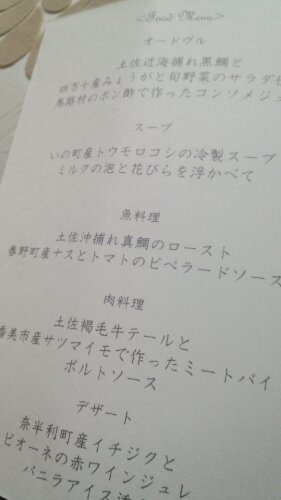 <Food Menu>
オードヴル
土佐近海捕れ黒鯛と
四万十産みょうがと旬野菜のサラダ
馬路村のポン酢で作ったコンソメジュ
スープ
いの町産トウモロコシの冷製スープ
ミルクの泡と花びらを浮かべて
魚料理
土佐沖捕れ真鯛のロースト
春野町産ナスとトマトのピペラードソース
肉料理
土佐褐毛牛テールと
香美市産サツマイモで作ったミートパイ
ポルトソース
デザート
奈半利町産イチジクと
ピオーネの赤ワインジュレ
バニラアイス